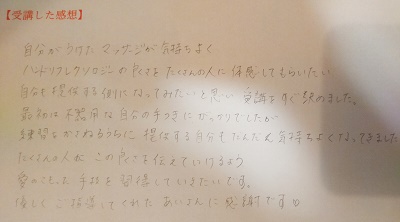 【受講した感想】
自分がうけた マッサージが気持ちよく
ハンドリフレクソロジーの良さを たくさんの人に 体感してもらいたい
自分も提供する側になってみたいと思い 受講をすぐ決めました。
最初は不器用な自分の手つきにがっかりでしたが
練習をかさねるうちに 提供する自分もだんだん気持ちよくなってきました
たくさんの人に この良さを伝えていけるよう
愛のこもった 手技を 習得していきたいです。
優しくご指導してくれた あいさんに感謝です